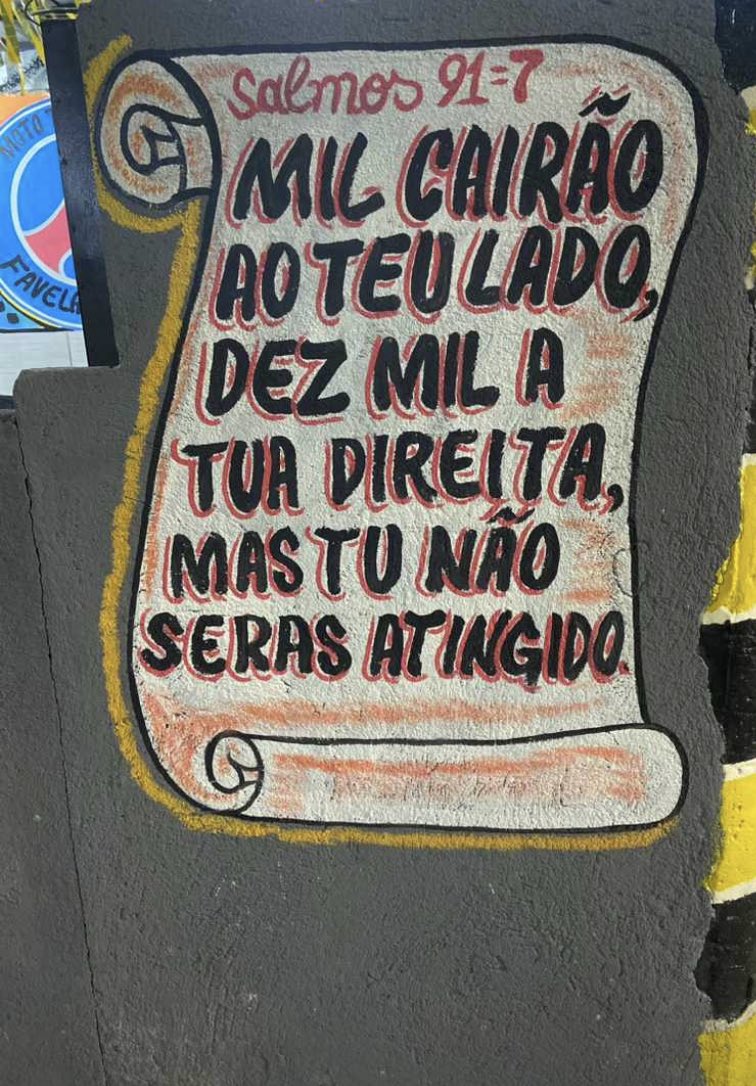 Salmos 91=7
MIL CAIRÃO
AO TEU LADO,
DEZ MIL A
TUA DIREITA,
MAS TU NÃO
SERAS ATINGIDO.
MOTO